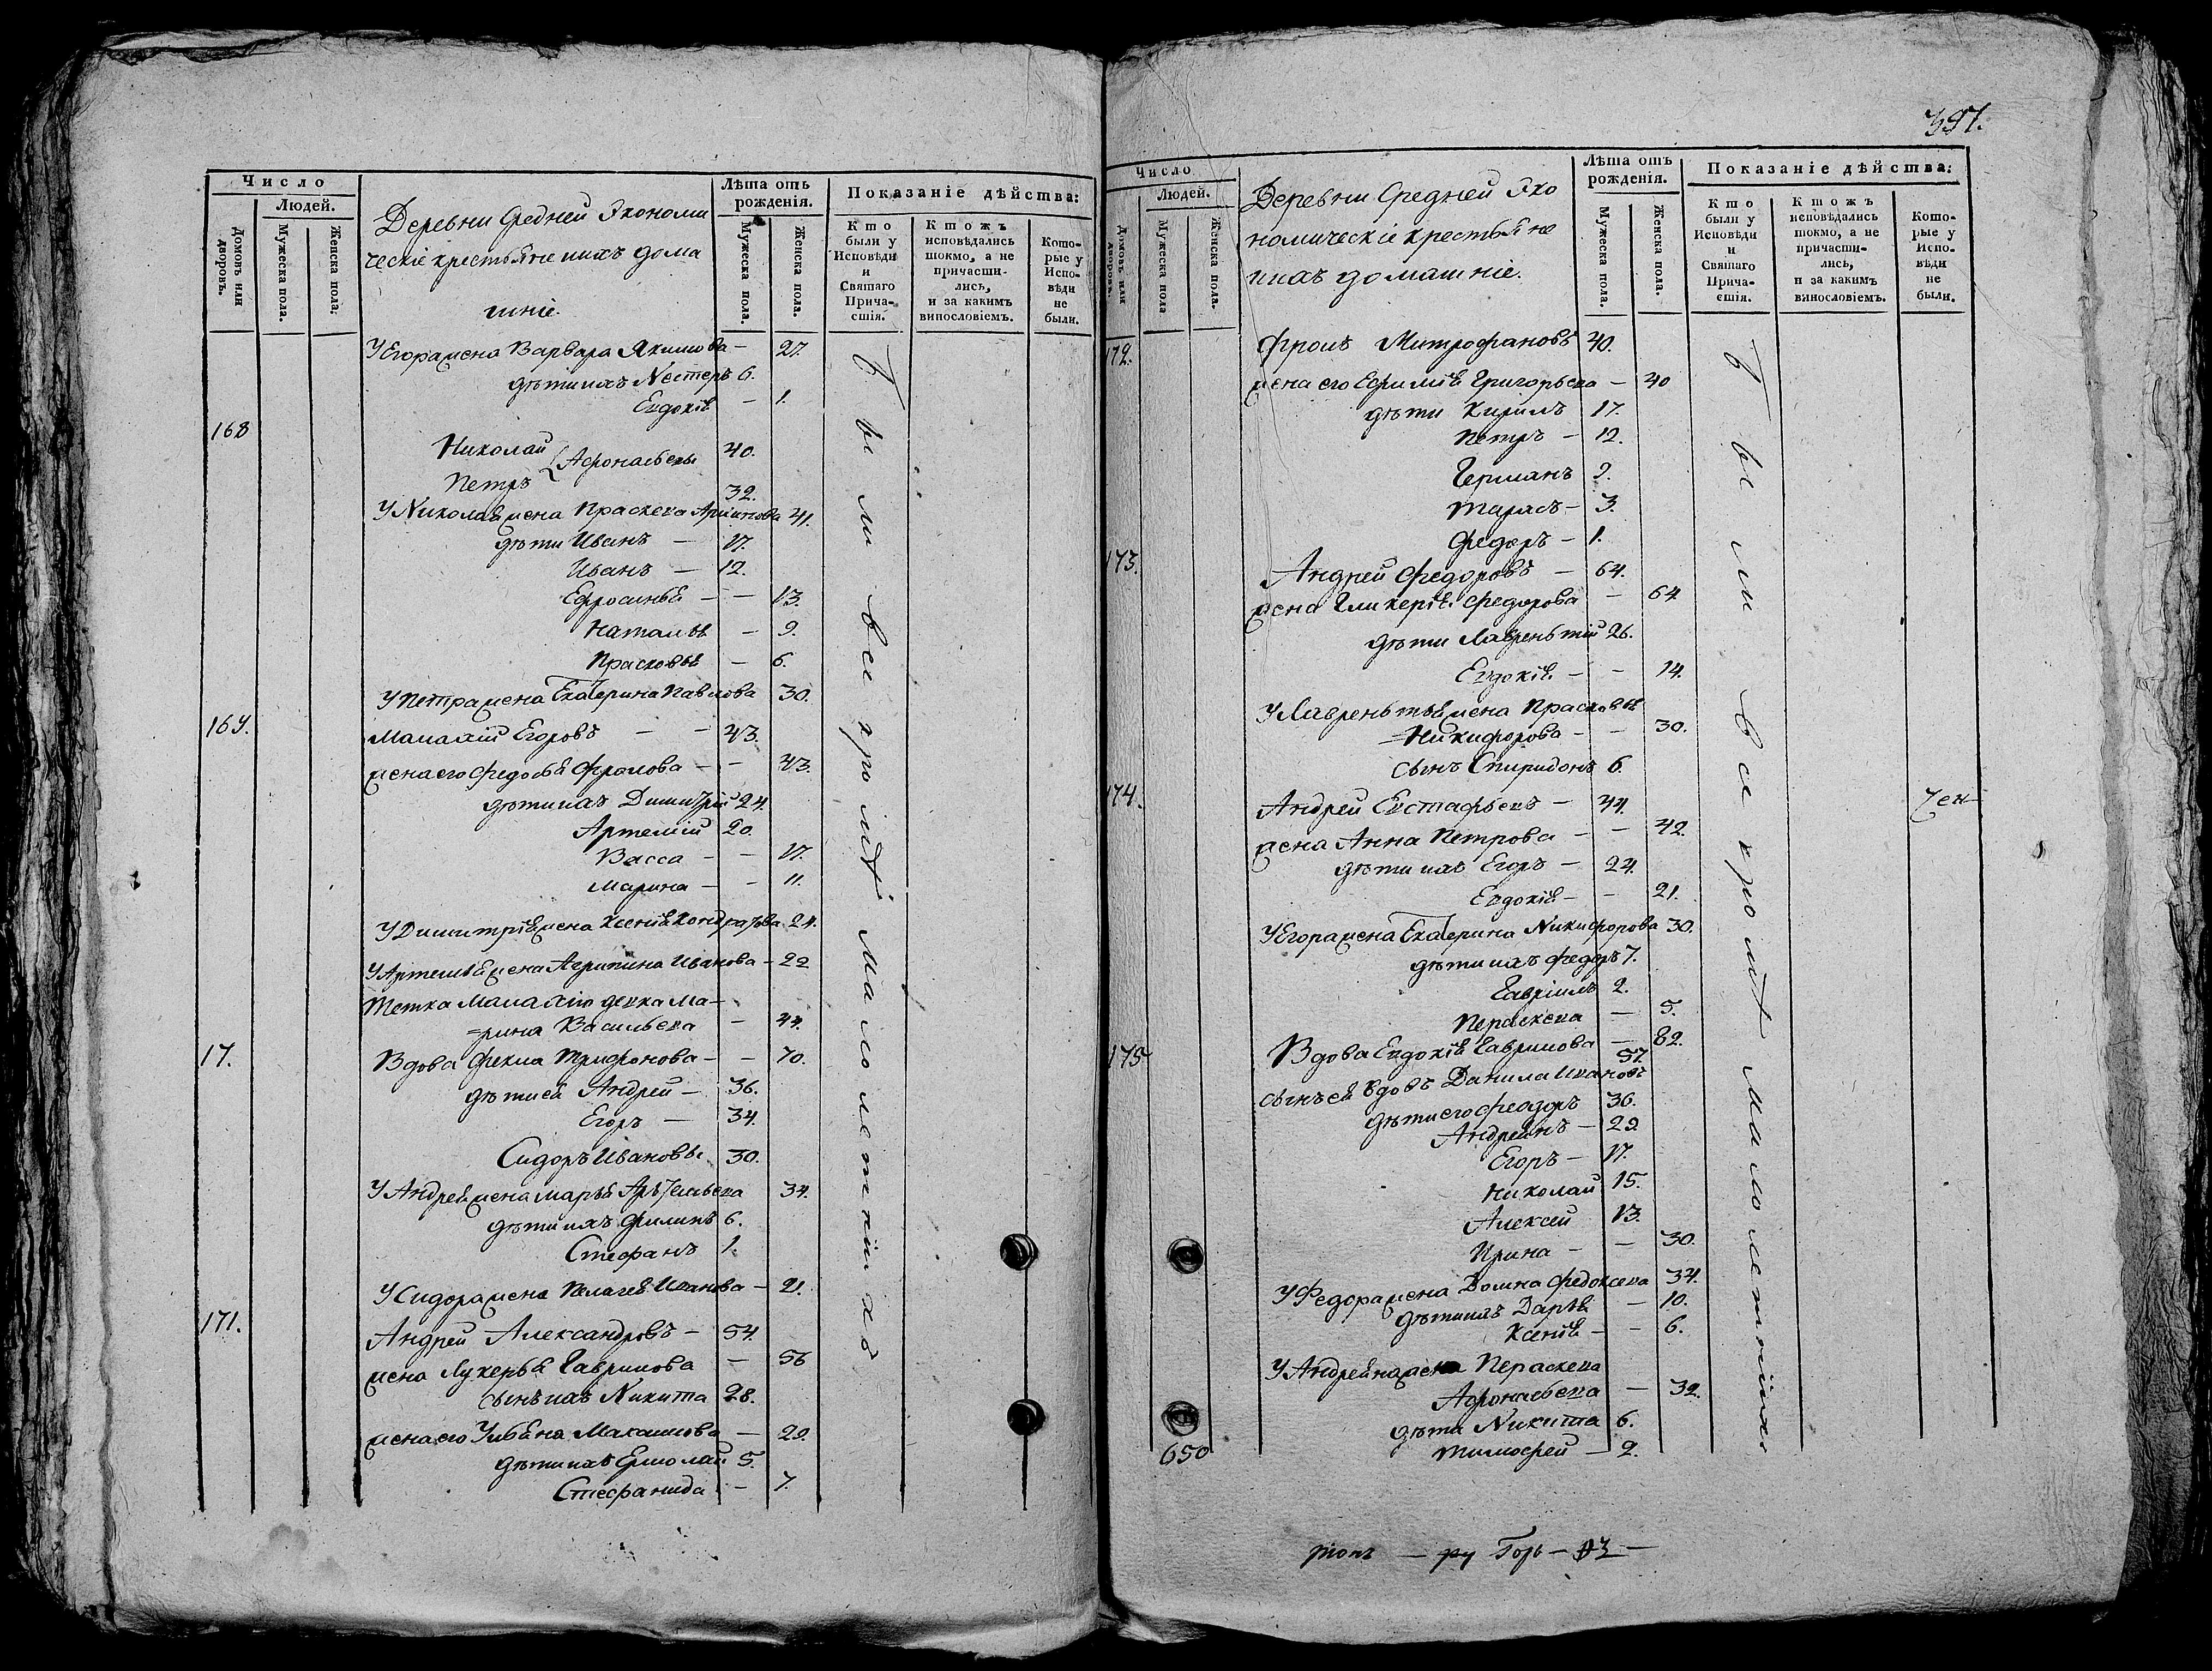 Число
Людей.
Домовъ или дворовъ.
Мужеска пола.
Женска пола.
Деревни Средней Экономи
ческіе крестьяне ихъ дома
шніе.
Лѣта отъ рожденія.
Мужеска пола.
Женска пола.
Показаніе дѣйства:
Кто были у Исповѣди и Святаго Причастія.
Ктожъ исповѣдались токмо, а не причастились, и за какимъ винословіемъ.
Которые у Исповѣди не были.
У Егора жена Варвара Якимова — 27.
дѣти ихъ Нестеръ 6.
Евдокія — 1.
168 Николай Афонасьевы 40.
Петръ 32.
У Николая жена Праскева 41.
дѣти Иванъ — 17.
Иванъ — 12.
Ефросинья — — 13.
Наталья — 9.
Прасковья — 6.
У Петра жена Екатерина Павлова 30.
169. Малахій Егоровъ — — 43.
жена его Федосья Фролова — — 43.
дѣти ихъ Димитрій 24.
Артемій 20.
Васса — — 17.
Марина — — 11.
У Димитрія жена Ксенія Кондратова 24.
У Артемья жена Агрипина Иванова — 22
Тетка Малахію девка Ма-
=рина Васильева — 44.
17. Вдова Фекла Трифонова — — 70.
дѣти ея Андрей — 36.
Егоръ — 34.
Сидоръ Ивановы 30.
У Андрея жена Марья 34.
дѣти ихъ Филипъ 6.
Стефанъ 1.
У Сидора жена Пелагея Иванова — 21.
171. Андрей Александровъ — 54.
жена Лукерья Гаврилова — 56
сынъ ихъ Никита 28.
жена его Ульяна Макашова — 29.
дѣти ихъ Ермолай 5.
Стефанида — 7.
Были все кромѣ малолетныхъ
397.
Число
Людей.
Домовъ или дворовъ.
Мужеска пола
Женска пола.
Деревни Средней Эко
номическіе крестьяне
ихъ домашніе.
Лѣта отъ рожденія.
Мужеска пола.
Женска пола.
Показаніе дѣйства:
Кто были у Исповѣди и Святаго Причастія.
Ктожъ исповѣдались токмо, а не причастились, и за какимъ винословіемъ.
Которые у Исповѣди не были.
172. Фролъ Митрофановъ 40.
жена его Ефимія Григорьева — 40
дѣти Кирилъ 17.
Петръ — 12.
Германъ 9.
Тарасъ — 3.
Федоръ — 1.
173. Андрей Федоровъ — 64.
жена Гликерія Федорова — 64
дѣти Лаврентій 26.
Евдокія — — 14.
У Лаврентья жена Прасковья
=Никифорова — — 30.
сынъ Спиридонъ 6.
174. Андрей Евстафьевъ — 44.
жена Анна Петрова — — 42.
дѣти ихъ Егоръ — 24.
Евдокія — — 21.
У Егора жена Екатерина Никифорова 30.
дѣти ихъ Федоръ 7.
Гаврилъ 2.
Пераскева — 5.
175 Вдова Евдокія Гаврилова — 82.
сынъ ея вдовъ Данила Ивановъ 57.
дѣти его Феодоръ 36.
Андреянъ — 29.
Егоръ — 17.
Николай 15.
Алексей 13.
Ирина — — 30.
У Федора жена Домна Федосеева 34.
дѣти ихъ Дарья — 10.
Ксенія — — 6.
У Андреяна жена Пераскева
Афонасьева — 32.
дѣти Никита 6.
Тимофей — 2.
Были все кромѣ малолетныхъ
650